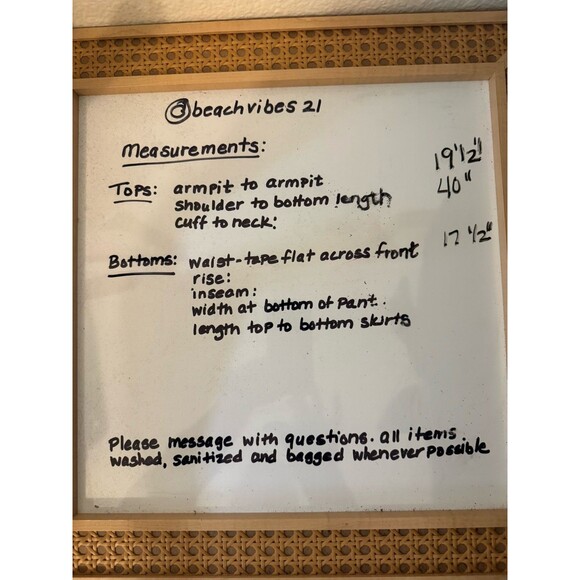 @beachvibes 21
Measurements:
Tops: armpit to armpit 19 1/2"
shoulder to bottom length 40"
cuff to neck:
Bottoms: waist-tape flat across front 17 1/2"
rise:
inseam:
width at bottom of pant.
length top to bottom skirts
Please message with questions. all items
washed, sanitized and bagged whenever possible